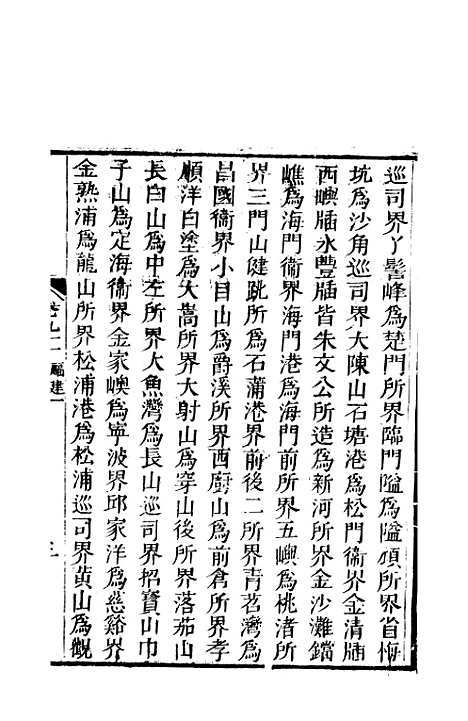 巡司界丫髻峰爲楚門所界臨門隘爲隘頑所界首梅
坑爲沙角巡司界大陳山石塘港爲松門衞界金清牐
西嶼牐永豐牐皆朱文公所造爲新河所界金沙灘鐺
礁爲海門衞界海門港爲海門前所界五嶼爲桃渚所
界三門山健跳所爲石蒲港界前後二所界青茗灣爲
昌國衞界小目山爲爵溪所界西廚山爲前倉所界孝
順洋白塗爲大嵩所界大射山爲穿山後所界落茄山
長白山爲中左所界大魚灣爲長山巡司界招寶山巾
子山爲定海衞界金家嶼爲寧波界邱家洋爲慈谿界
金熟浦爲龍山所界松浦港爲松浦巡司界黄山爲觀
卷九十二 福建一
三